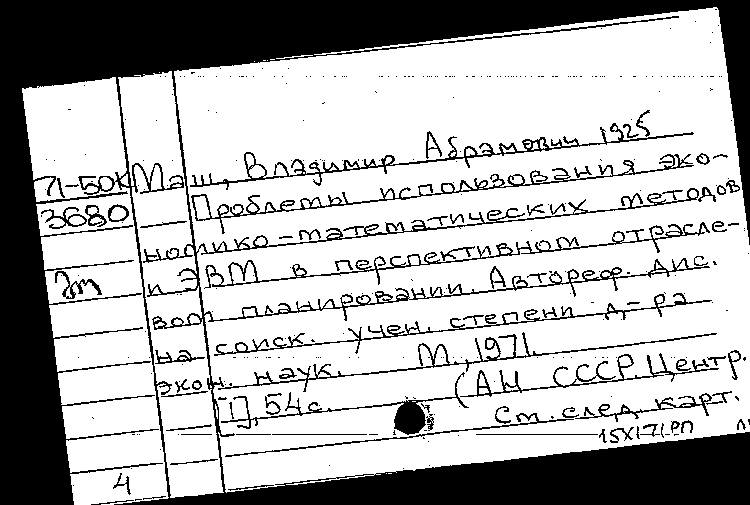 71-50к Маш, Владимир Абрамович 1925
3680 Проблемы использования эко-
номико-математических методов
и ЭВМ в перспективном отрасле-
вом планировании. Автореф. дис.
на соиск. учен. степени д-ра
экон. наук. М., 1971.
[1], 54 с. (АН СССР. Центр.
См. след. карт.
4